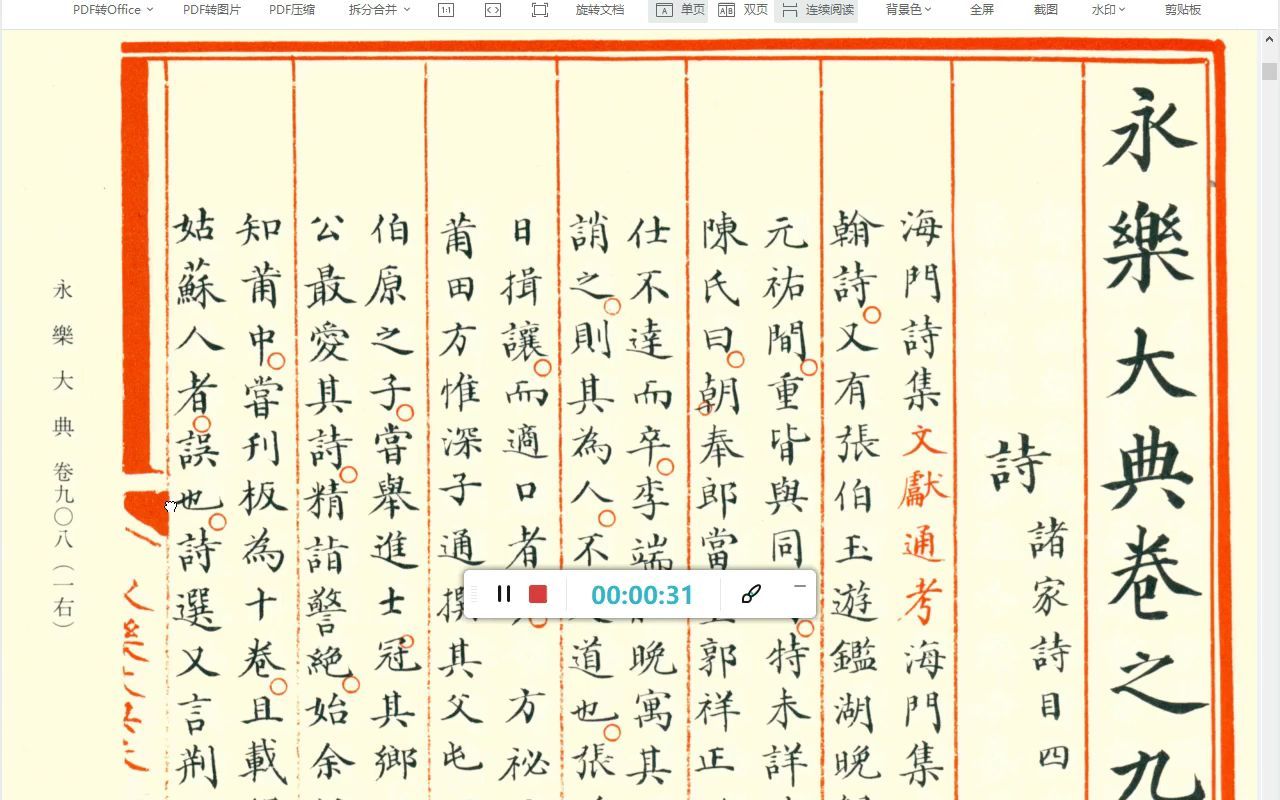 PDF转Office
PDF转图片
PDF压缩
拆分合并
旋转文档
单页
双页
连续阅读
背景色
全屏
截图
水印
剪贴板
永樂大典卷之九
詩
諸家詩目四
海門詩集文獻通考海門集
翰詩又有張伯玉遊鑑湖晚
元祐間重皆與同
特未詳
陳氏曰朝奉郎當
郭祥正
仕不達而卒李端
晚寓其
誚之則其為人不
道也張
日揖讓而適口者
方祕
莆田方惟深子通撰其父屯
伯原之子嘗舉進士冠其鄉
公最愛其詩精詣警絕始余
知莆中嘗刊板為十卷且載
姑蘇人者誤也詩選又言荆
永樂大典卷九〇八（一右）
00:00:31